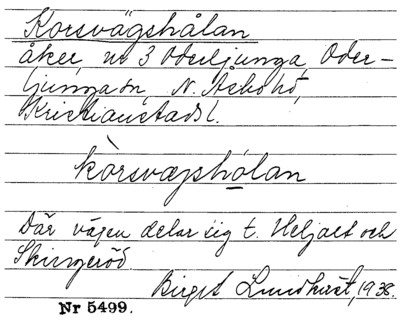 Korsvägshålan
åker, nr 3 Oderljunga, Oder-
ljunga sn, N. Åsbo hd,
Kristianstads l.
kòrsvæjshólan
Där vägen delar sig t. Heljalt och
Skingeröd
Birget Lundkvist, 1938.
Nr 5499.